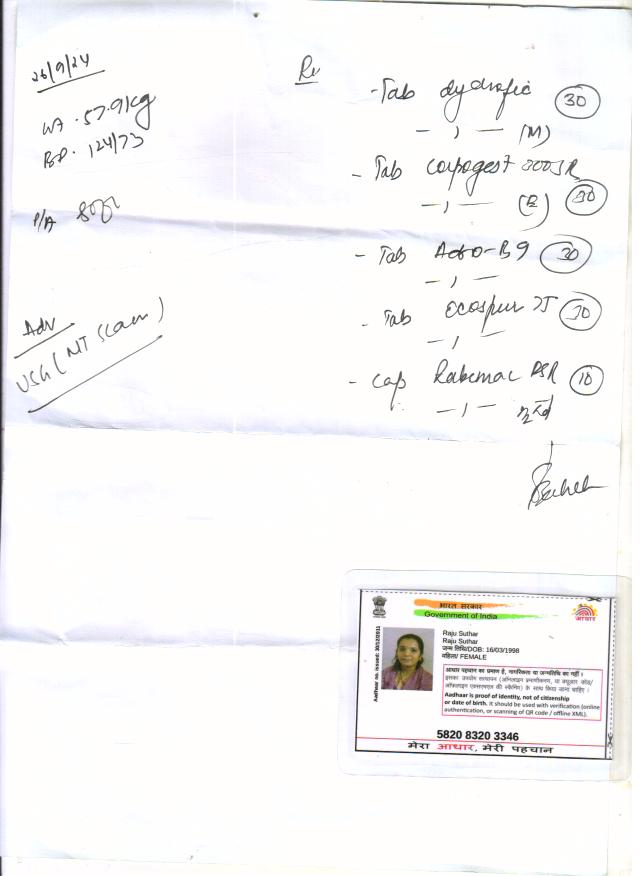 26/9/24
Wt. 57.9kg
BP. 124/73
P/A Soft
Adv
USG (NT Scan)
Rx
- Tab dydrofic 30
- , - (M)
- Tab 300SR 30
- , -
- Tab 30
- , -
- Tab 30
- , -
- Cap DSR 10
- , -
भारत सरकार
Government of India
आधार
Raju Suthar
Raju Suthar
जन्म तिथि/DOB: 16/03/1998
महिला/ FEMALE
Aadhaar no. issued: 30/12/2011
आधार पहचान का प्रमाण है, नागरिकता या जन्मतिथि का नहीं।
इसका उपयोग सत्यापन (ऑनलाइन प्रमाणीकरण, या क्यूआर कोड/
ऑफलाइन एक्सएमएल की स्कैनिंग) के साथ किया जाना चाहिए।
Aadhaar is proof of identity, not of citizenship
or date of birth. It should be used with verification (online
authentication, or scanning of QR code / offline XML).
5820 8320 3346
मेरा आधार, मेरी पहचान